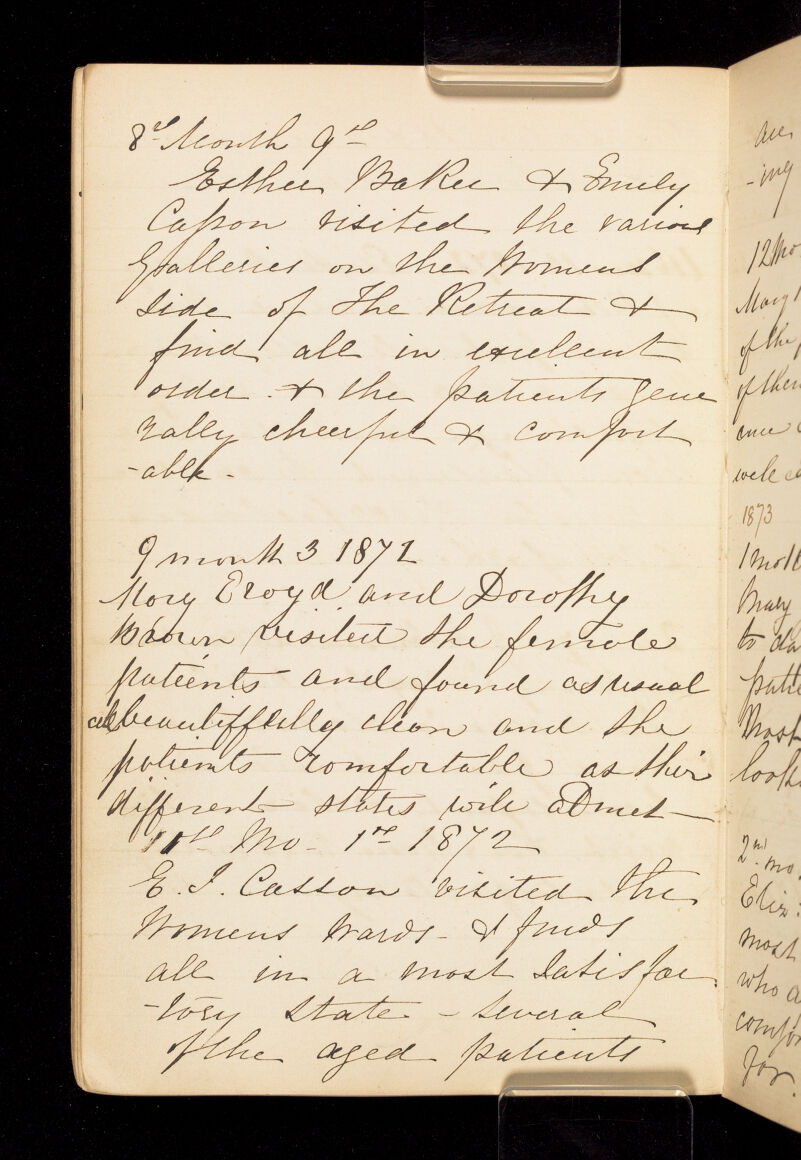 8th Month 9th
Esther Baker & Emily
Casson visited the various
Galleries on the Womens
side of The Retreat &
find all in excellent
order. & the patients gene
rally cheerful & comfort
-able -
9 month 3 1872
Mary Ecroyd and Dorothy
Brown visited the female
patients and found as usual
all beautiffully clean and the
patients comfortable as their
different states will admet
11th Mo. 1st 1872
E. J. Casson visited the
Womens wards - & finds
all in a most satisfac
-tory state - several
of the aged patients
are
-ing
12 Mo
Mary
of the
of them
ance
well
1873
1 mo
Mary
to
Most
look
2nd mo.
Eliz:
most
who a
for.